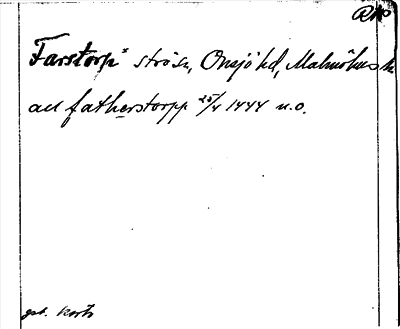 RAP
Farstorp" strö sn, Onsjö hd, Malmöhus län
au fatherstorpp 25/4 1444 n.o.
gst. korts